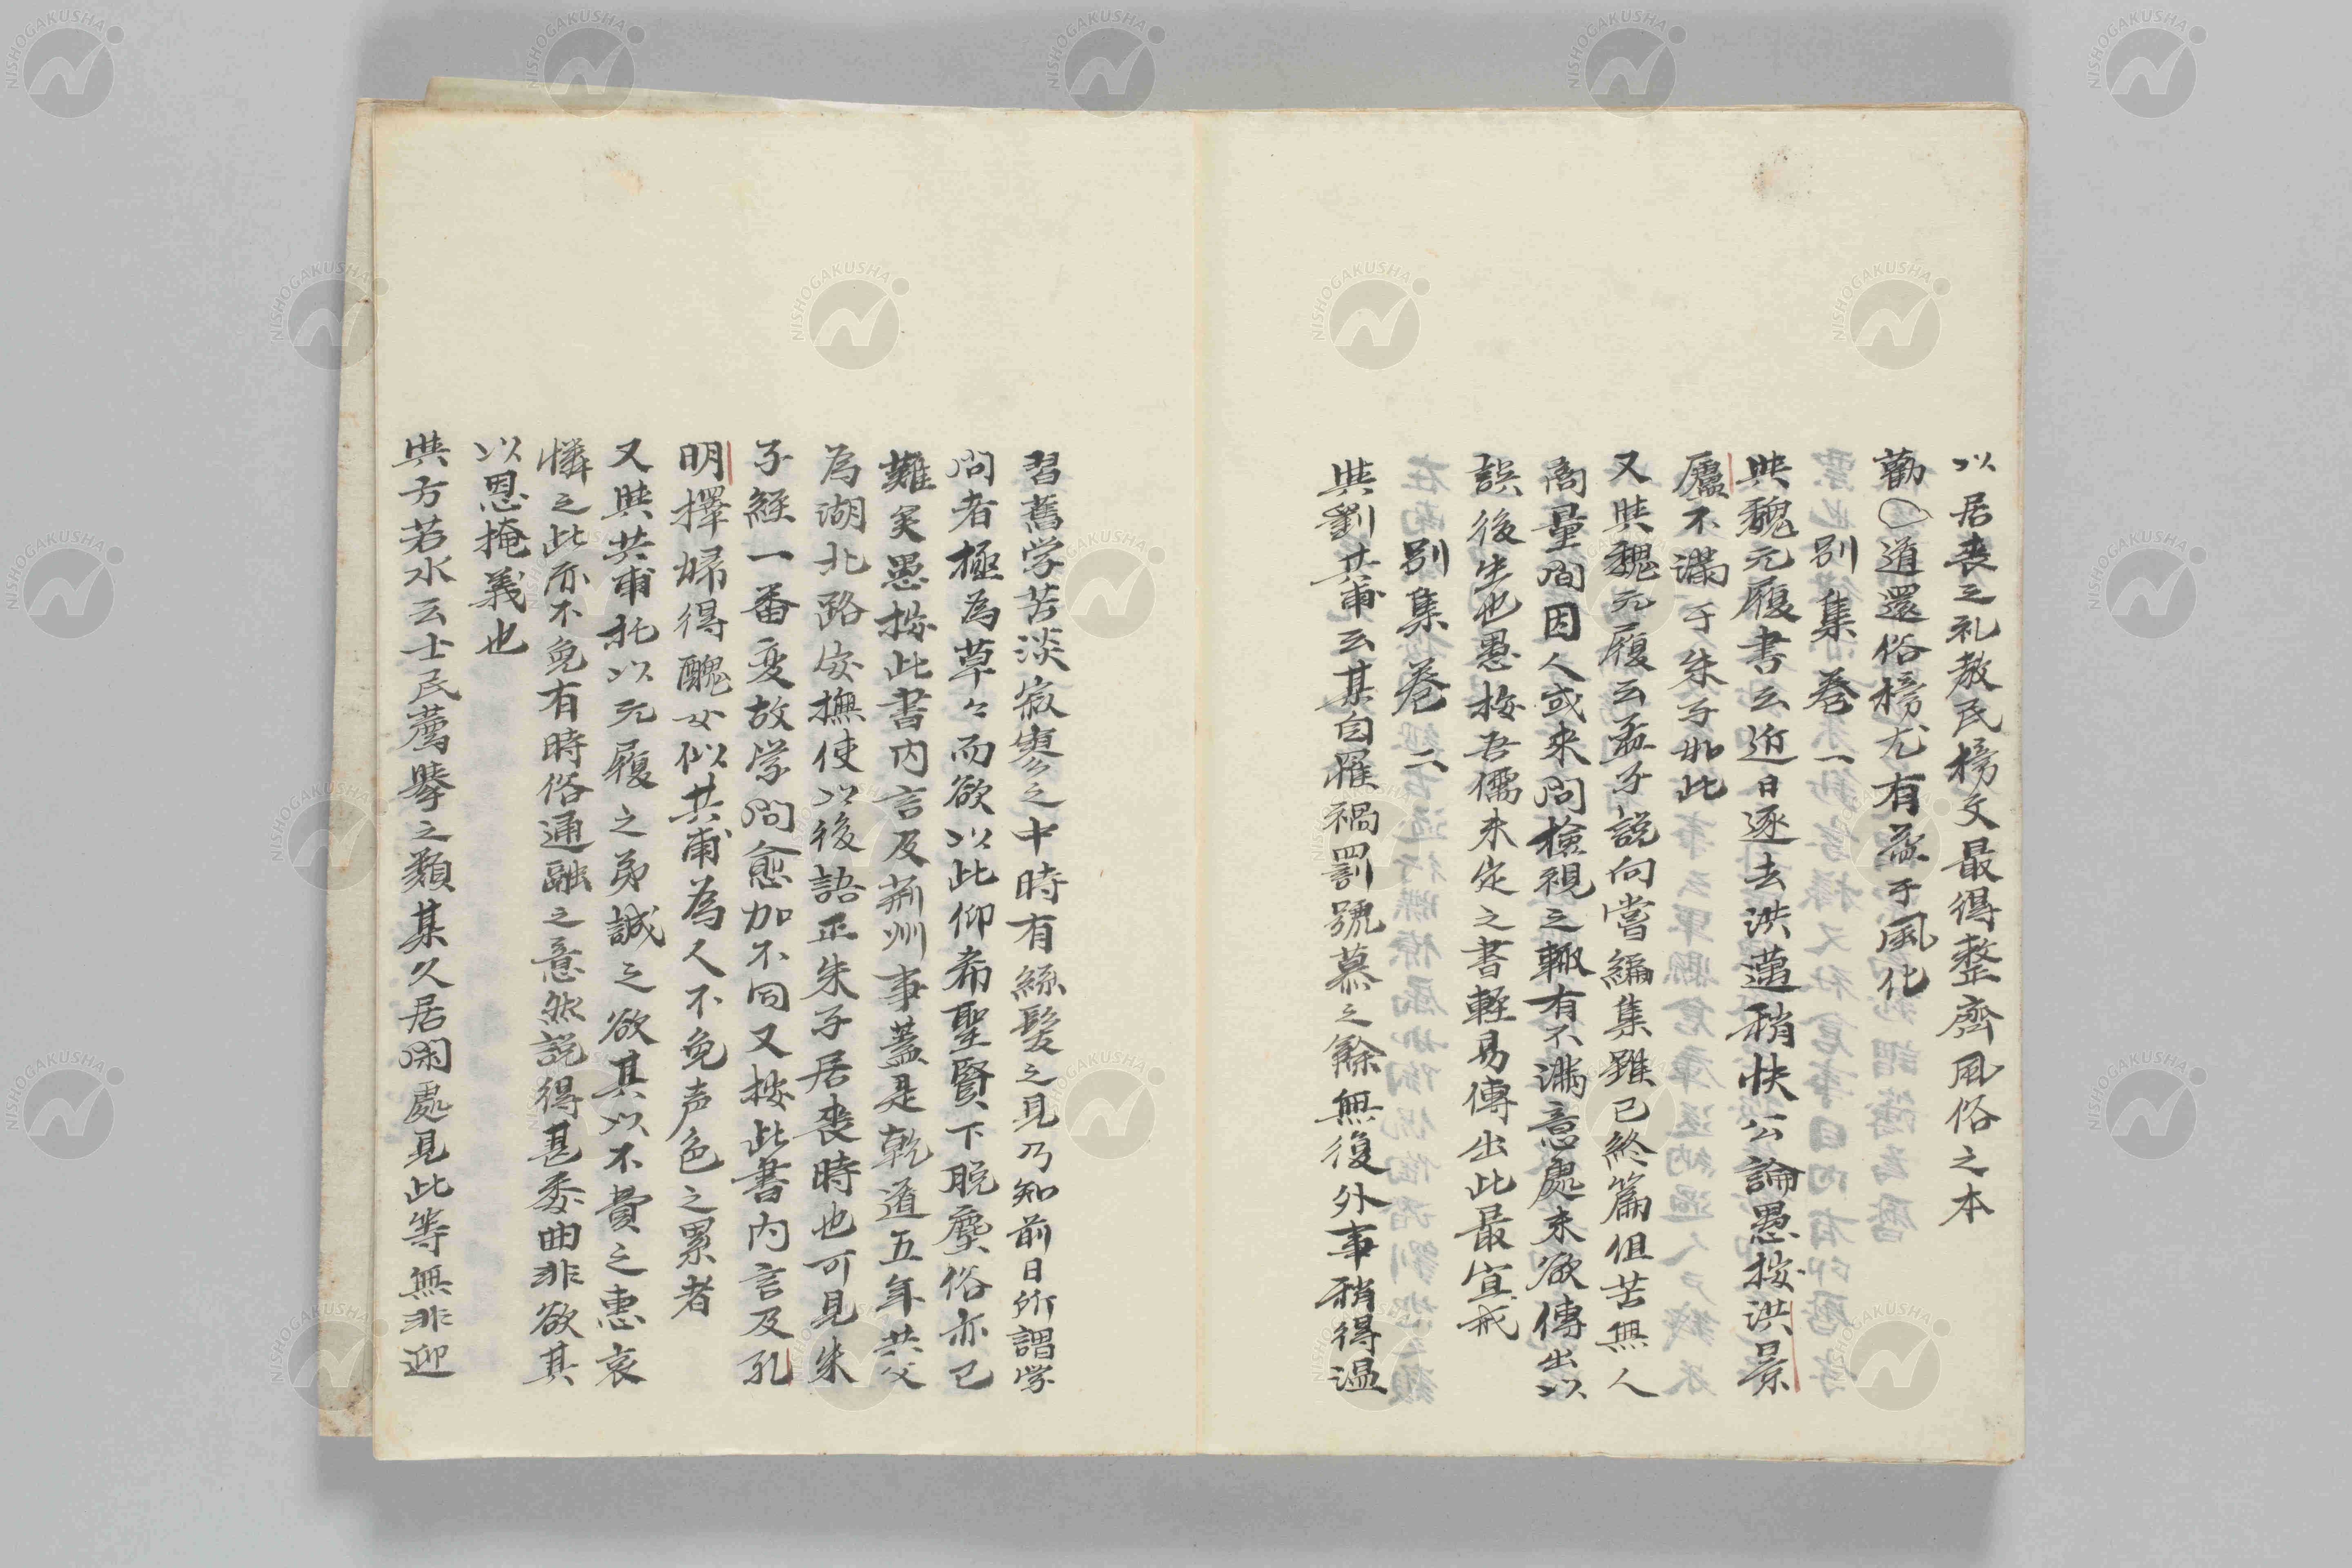 以居喪之礼教民榜文最得整齊風俗之本
勸〇道還俗榜尤有益于風化
別集 卷一
與魏元履書云近日逐去洪邁稍快公論愚按洪景
廬不滿于朱子如此
又與魏元履云孟子說向嘗編集雖已終篇但苦無人
商量間因人或来問檢視之輙有不滿意處未欲傳出以
誤後生也愚按吾儒未定之書輕易傳出此最宜戒
別集 卷二
與劉共甫云某自罹禍罰號慕之餘無復外事稍得温
習舊学苦淡寂寥之中時有絲髮之見乃知前日所謂学
問者極為草々而欲以此仰希聖賢下脱塵俗亦已
難矣愚按此書内言及荊州事蓋是乾道五年共父
為湖北路安撫使以後語正朱子居喪時也可見朱
子經一番变故学問愈加不同又按此書内言及孔
明擇婦得醜女似共甫為人不免声色之累者
又與共甫托以元履之弟誠之欲其以不貲之惠哀
憐之此亦不免有時俗通融之意然説得甚委曲非欲其
以恩掩義也
與方若水云士民薦擧之類某久居閑處見此等無非迎
NISHOGAKUSHA